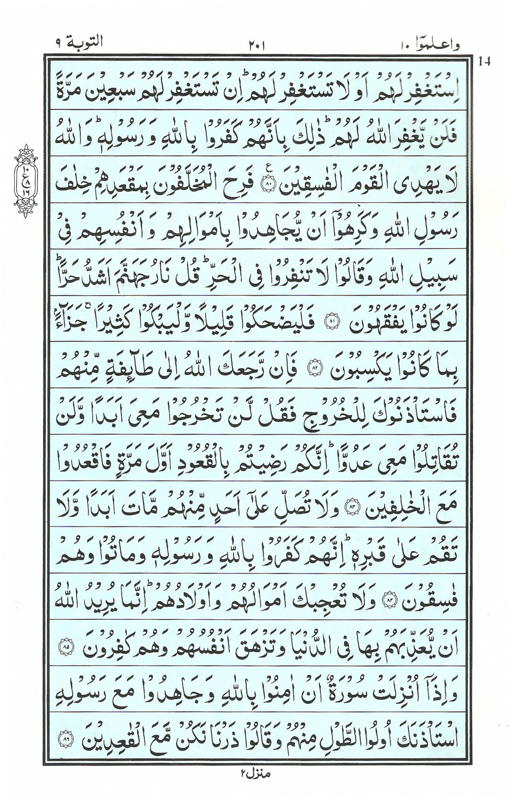 واعلموٓا ١٠
٢٠١
التوبة ٩
14
اِسْتَغْفِرْ لَهُمْ اَوْ لَا تَسْتَغْفِرْ لَهُمْ ؕ اِنْ تَسْتَغْفِرْ لَهُمْ سَبْعِيْنَ مَرَّةً
فَلَنْ يَّغْفِرَ اللّٰهُ لَهُمْ ؕ ذٰلِكَ بِاَنَّهُمْ كَفَرُوْا بِاللّٰهِ وَ رَسُوْلِهٖ ؕ وَ اللّٰهُ
لَا يَهْدِى الْقَوْمَ الْفٰسِقِيْنَ ۝٨٠ ع فَرِحَ الْمُخَلَّفُوْنَ بِمَقْعَدِهِمْ خِلٰفَ
رَسُوْلِ اللّٰهِ وَ كَرِهُوْٓا اَنْ يُّجَاهِدُوْا بِاَمْوَالِهِمْ وَ اَنْفُسِهِمْ فِىْ
سَبِيْلِ اللّٰهِ وَ قَالُوْا لَا تَنْفِرُوْا فِى الْحَرِّ ؕ قُلْ نَارُ جَهَنَّمَ اَشَدُّ حَرًّا ؕ
لَوْ كَانُوْا يَفْقَهُوْنَ ۝٨١ فَلْيَضْحَكُوْا قَلِيْلًا وَّلْيَبْكُوْا كَثِيْرًا ۚ جَزَآءًۢ
بِمَا كَانُوْا يَكْسِبُوْنَ ۝٨٢ فَاِنْ رَّجَعَكَ اللّٰهُ اِلٰى طَآئِفَةٍ مِّنْهُمْ
فَاسْتَاْذَنُوْكَ لِلْخُرُوْجِ فَقُلْ لَّنْ تَخْرُجُوْا مَعِىَ اَبَدًا وَّلَنْ
تُقَاتِلُوْا مَعِىَ عَدُوًّا ؕ اِنَّكُمْ رَضِيْتُمْ بِالْقُعُوْدِ اَوَّلَ مَرَّةٍ فَاقْعُدُوْا
مَعَ الْخٰلِفِيْنَ ۝٨٣ وَلَا تُصَلِّ عَلٰٓى اَحَدٍ مِّنْهُمْ مَّاتَ اَبَدًا وَّلَا
تَقُمْ عَلٰى قَبْرِهٖ ؕ اِنَّهُمْ كَفَرُوْا بِاللّٰهِ وَ رَسُوْلِهٖ وَمَاتُوْا وَهُمْ
فٰسِقُوْنَ ۝٨٤ وَلَا تُعْجِبْكَ اَمْوَالُهُمْ وَ اَوْلَادُهُمْ ؕ اِنَّمَا يُرِيْدُ اللّٰهُ
اَنْ يُّعَذِّبَهُمْ بِهَا فِى الدُّنْيَا وَ تَزْهَقَ اَنْفُسُهُمْ وَهُمْ كٰفِرُوْنَ ۝٨٥
وَ اِذَآ اُنْزِلَتْ سُوْرَةٌ اَنْ اٰمِنُوْا بِاللّٰهِ وَ جَاهِدُوْا مَعَ رَسُوْلِهِ
اسْتَاْذَنَكَ اُولُوا الطَّوْلِ مِنْهُمْ وَ قَالُوْا ذَرْنَا نَكُنْ مَّعَ الْقٰعِدِيْنَ ۝٨٦
منزل ٢